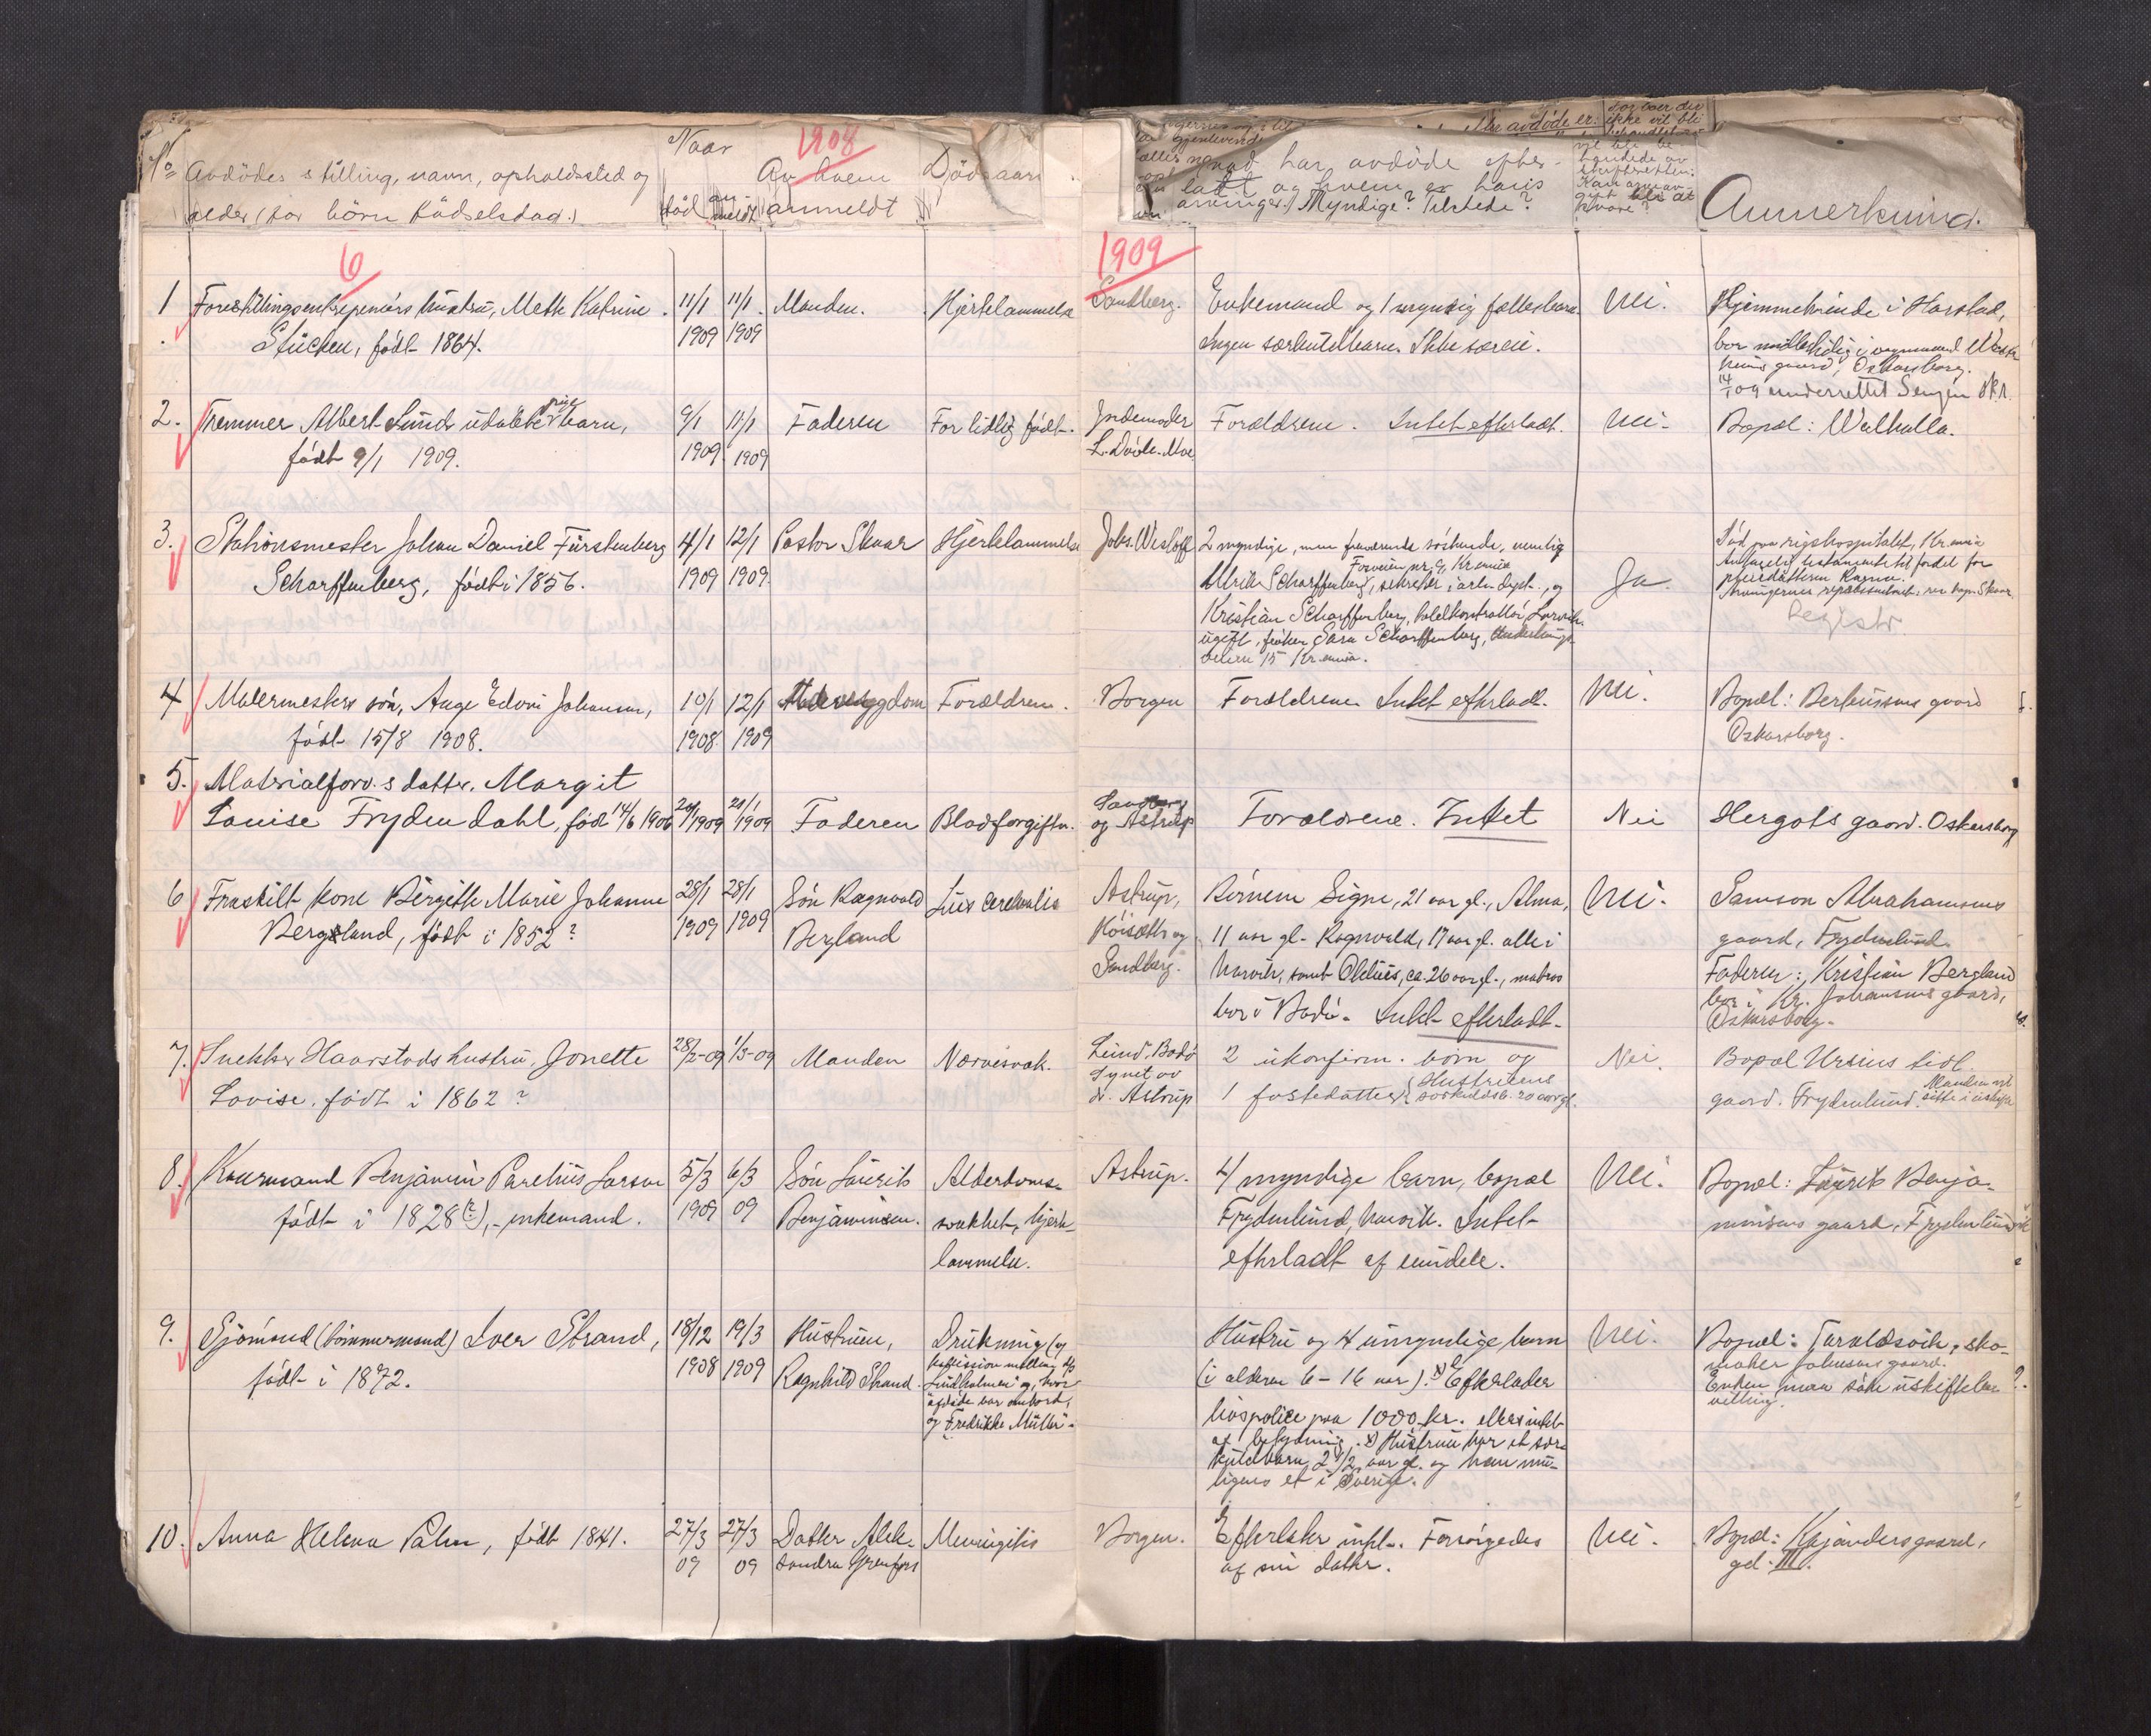 1908
No Avdödes stilling, navn, opholdssted og
alder (for börn födselsdag.)
Naar
död an meldt
Av hvem
anmeldt
Dödsaars
avdöde er:
hvad har avdöde efter-
ladt og hvem er hans
arvinger? Myndige? Tilstede?
Anmerkning.
6
1909
1 Forestillingsentreprenörs hustru, Mette Katrine
Stücken, födt 1864.
11/1 1909
11/1 1909
Manden.
Hjertelammelse
Sandberg.
Enkemand og 1 myndig fællesbarn.
Ingen særkuldbarn. Ikke særeie.
Nei.
Hjemmehörende i Harstad,
bor midlertidig i
gaard, Oskarsborg.
14/1 09 underrettet Senjen skr.
2. Tremmer Albert Lunds udöbte pige barn,
födt 9/1 1909.
9/1 1909
11/1 1909
Faderen
For tidlig födt.
Jordemoder
L. Dvöle-Moe
Forældrene. Intet efterladt.
Nei.
Bopæl: Walhalla.
3. Stationsmester Johan Daniel Fürstenberg
Scharffenberg, födt i 1856.
4/1 1909
12/1 1909
Pastor Skaar
Hjertelammelse
Jobs. Wisløff
2 myndige, men fraværende söskende, nemlig
Forveien nr. 9, Kr.ania
Ulrik Scharffenberg, sekretær i arb. dept., og
Kristian Scharffenberg, toldkontrollör, Larvik.
ugift, fröken Sara Scharffenberg,
veien 15 Kr.ania.
Ja
Död paa rigshospitalet, Kr.ania
Antagelig testamente til fordel for
pleiedatteren Ragna.
Arvingernes repræsentant: res. kap. Skaar
Registr
4 Malermesters sön, Aage Edvin Johansen,
födt 15/8 1908.
10/1 1908
12/1 1909
Forældrene.
Borgen
Forældrene Intet efterladt.
Nei.
Bopæl: Berteussens gaard
Oskarsborg.
5. Materialforv.s datter. Margit
Louise Frydendahl, föd 14/6 1906
20/1 1909
21/1 1909
Faderen
Blodforgiftn.
Sandberg
og Astrup
Forældrene. Intet
Nei
Hergots gaard. Oskarsborg
6 Fraskilt kone Birgitte Marie Johanne
Bergsland, födt i 1852?
28/1 1909
28/1 1909
Sön Ragnvald
Bergland
Lues cerebralis
Astrup,
Röisæth og
Sandberg.
Börnene Signe, 21 aar gl., Alma,
11 aar gl. Ragnvald, 17 aar gl. alle i
Narvik, samt Oldus, ca. 26 aar gl., matros
bor i Bodö. Intet efterladt.
Nei.
Samson Abrahamsens
gaard, Frydenlund
Faderen: Kristian Bergland
bor i Kr. Johansens gaard,
Oskarsborg.
7. Snekker Haarstads hustru, Jonette
Lovise. födt i 1862?
28/2-09
1/3-09
Manden
Nervesvak.
Lund. Bodö
Synet av
dr. Astrup
2 ukonfirm. börn og
1 fosterdatter (Hustruens
særkuldsb. 20 aar gl.
Nei.
Bopæl Ursins tidl.
gaard. Frydenlund. Manden vil
sitte i uskifte
8. Kaarmand Benjamin Parelius Larsen
födt i 1828(?), enkemand.
5/3 1909
6/3 09
Sön Laurits
Benjaminsen.
Alderdoms-
svakhet, hjerte-
lammelse.
Astrup.
4 myndige barn, bopæl
Frydenlund, Narvik. Intet
efterladt af eiendele.
Nei.
Bopæl: Laurits Benja-
minsens gaard, Frydenlund
9. Sjömand (tömmermand) Iver Strand,
födt i 1872.
18/12 1908
19/3 1909
Hustruen,
Ragnhild Strand.
Drukning (ved
kollission mellem d/s
"Lindholmen", hvor
afdöde var ombord,
og "Fredrikke Müller".
Hustru og 4 umyndige barn
(i alderen 6–16 aar). x) Efterlader
livspolice paa 1000 kr. ellers intet
af betydning. x) Hustruen har et sær-
kuldbarn 2 1/2 aar gl. og han mu-
ligens et i Sverige.
Nei.
Bopæl: Taraldsvik, sko-
maker Johansens gaard.
Enken maa söke uskiftebe-
villing.
10. Anna Helena Palm, födt 1841.
27/3 09
27/3 09
Datter Alek-
sandra Grenfors
Meningitis
Borgen.
Efterlater intet. Forsörgedes
af sin datter.
Nei.
Bopæl: Kjandersgaard,
gd. III.